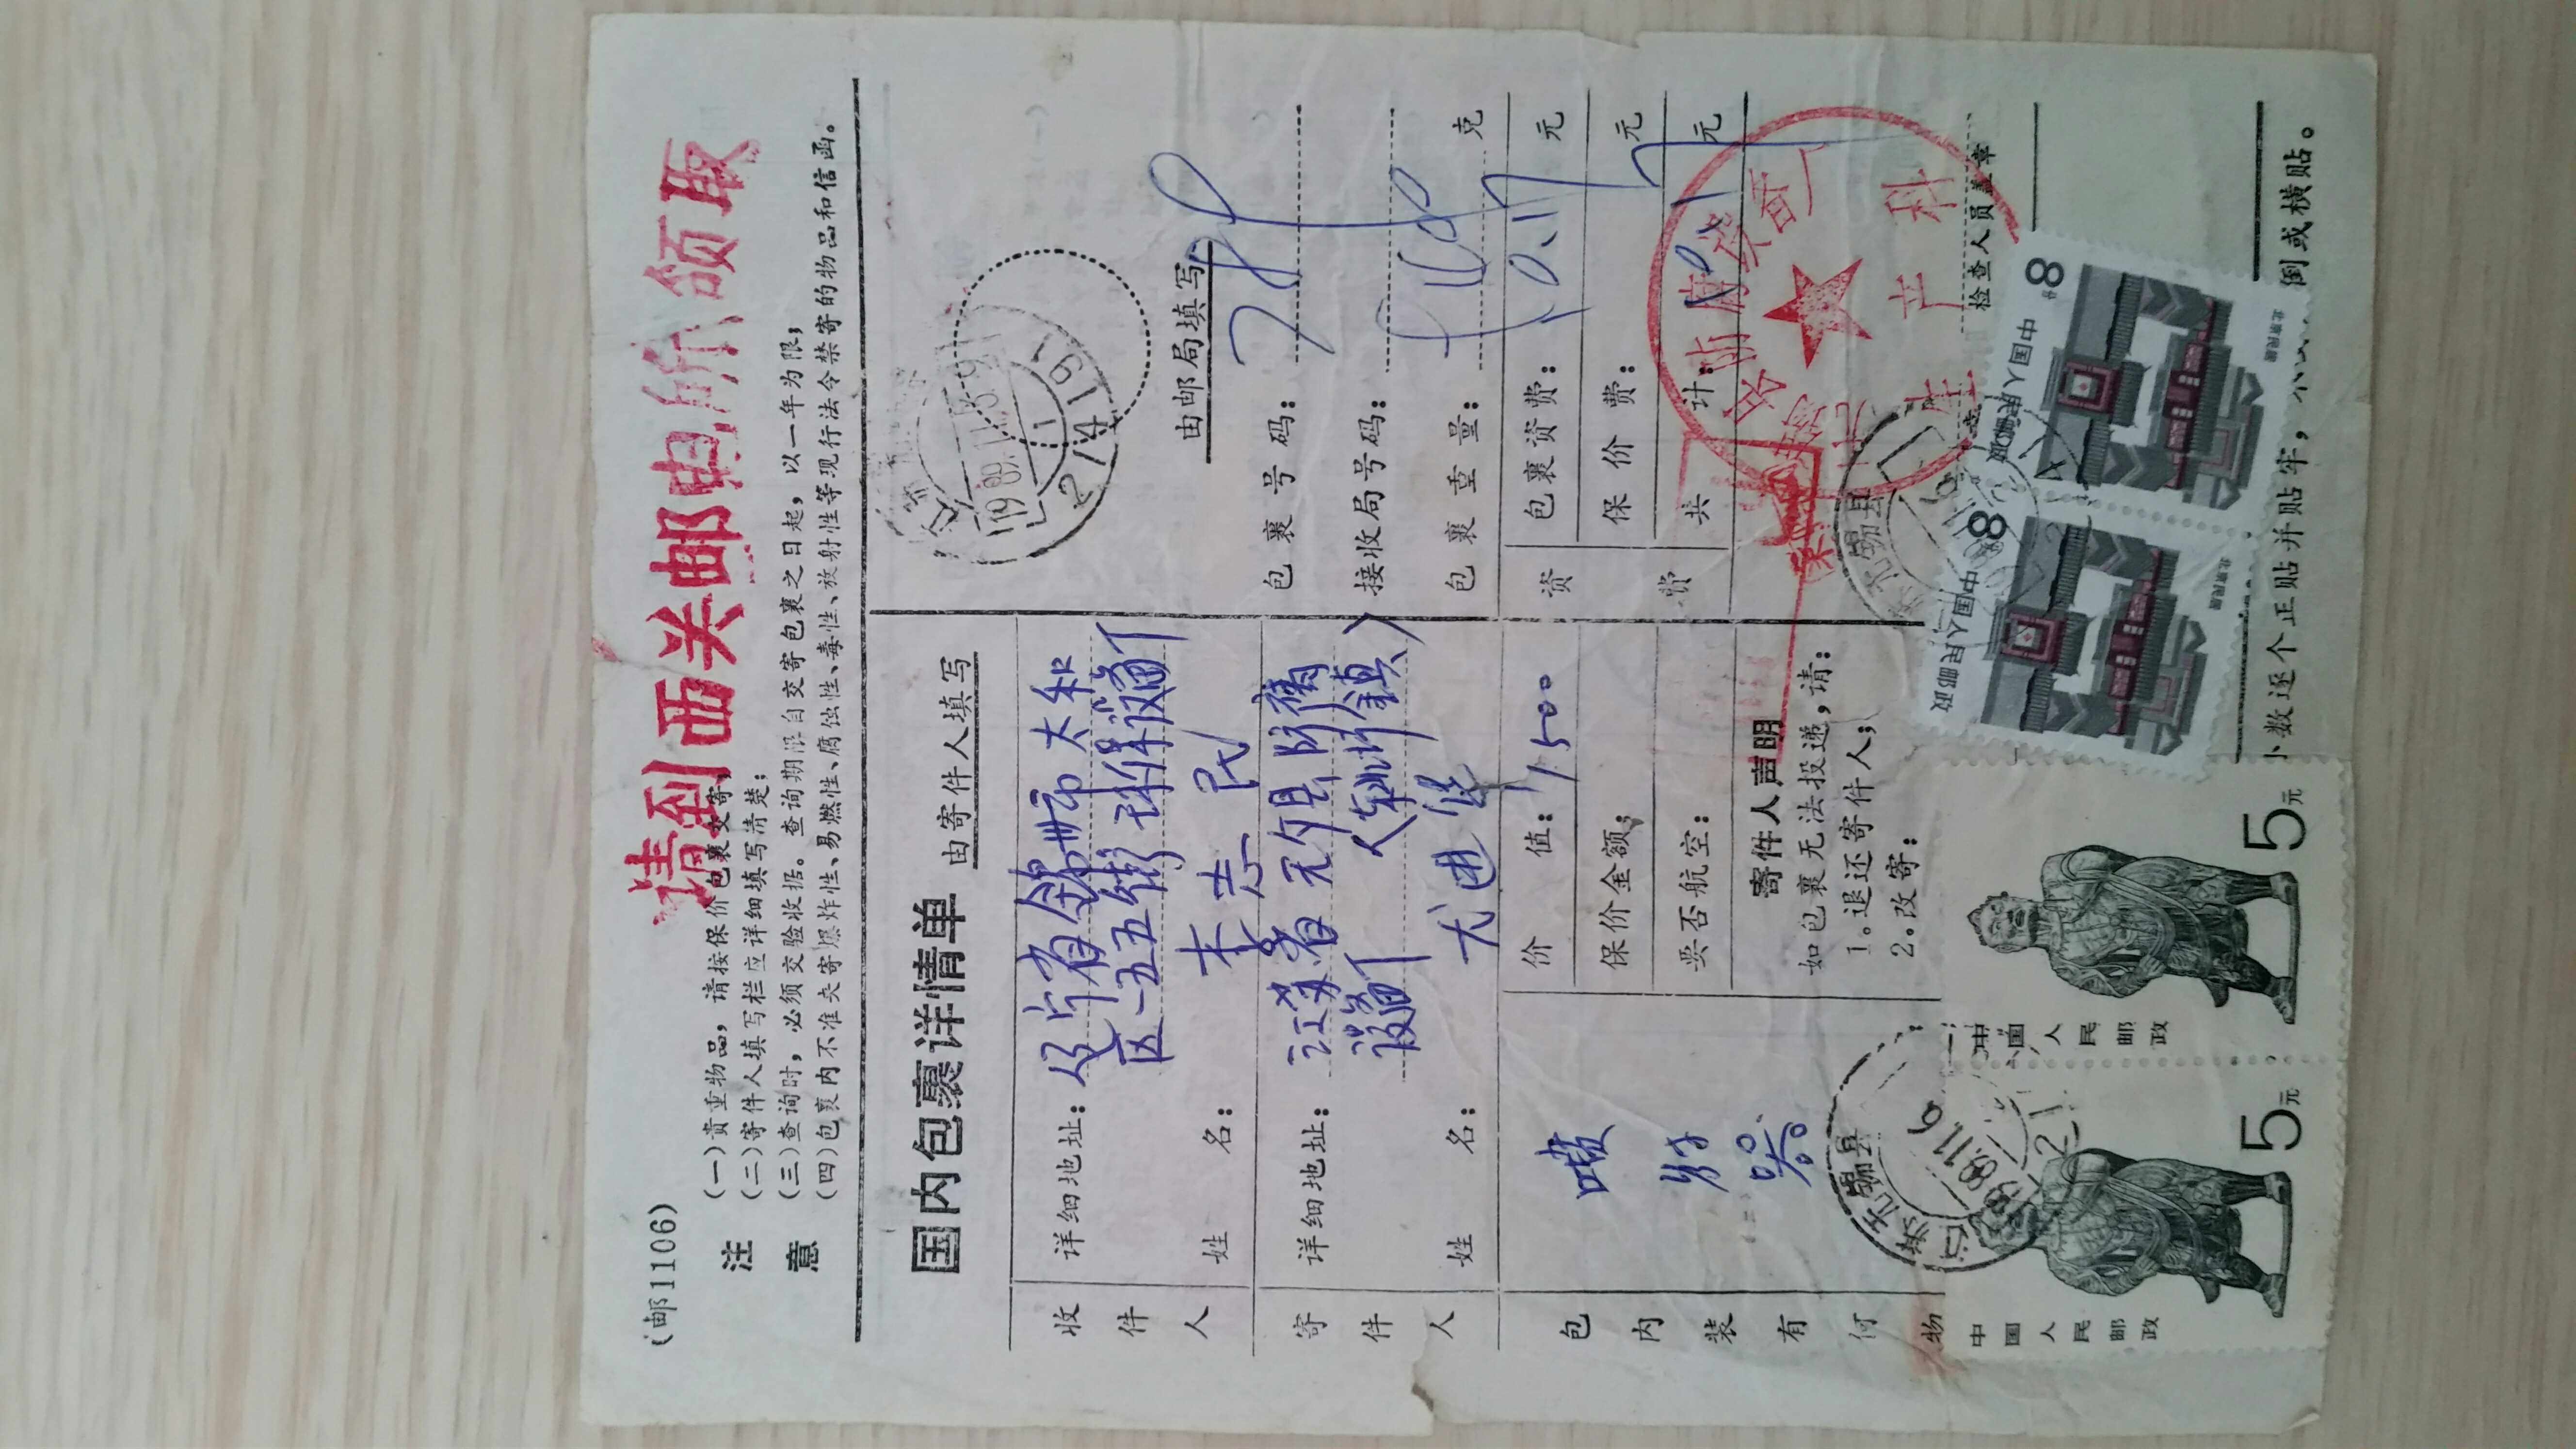 请到西关邮电所领取
(邮1106)
注意
(一)贵重物品，请按保价包裹交寄；
(二)寄件人填写栏应详细填写清楚；
(三)查询时，必须交验收据。查询期限自交寄包裹之日起，以一年为限；
(四)包裹内不准夹寄爆炸性、易燃性、腐蚀性、毒性、放射性等现行法令禁寄的物品和信函。
国内包裹详情单
由寄件人填写
收件人
详细地址：辽宁省锦州市太和
区一五五街 环保设备厂
姓名：李志民
寄件人
详细地址：江苏省无夕县防腐
设备厂（洲镇）
姓名：尤进
包内装有何物
喷
价值：1500
保价金额：
要否航空：
寄件人声明
如包裹无法投递，请：
1。退还寄件人；
2。改寄：
由邮局填写
包裹号码：78
接收局号码：
包裹重量：克
资费
包裹资费：10.17元
保价费：元
共计：元
检查人员盖章
生产科
1989.11.9
江苏无锡县
1989.11.6
江苏无锡县
中国人民邮政
5元
中国人民邮政
5元
中国人民邮政
8分
北京民居
中国人民邮政
8分
北京民居
小数逐个正贴并贴牢，
倒或横贴。